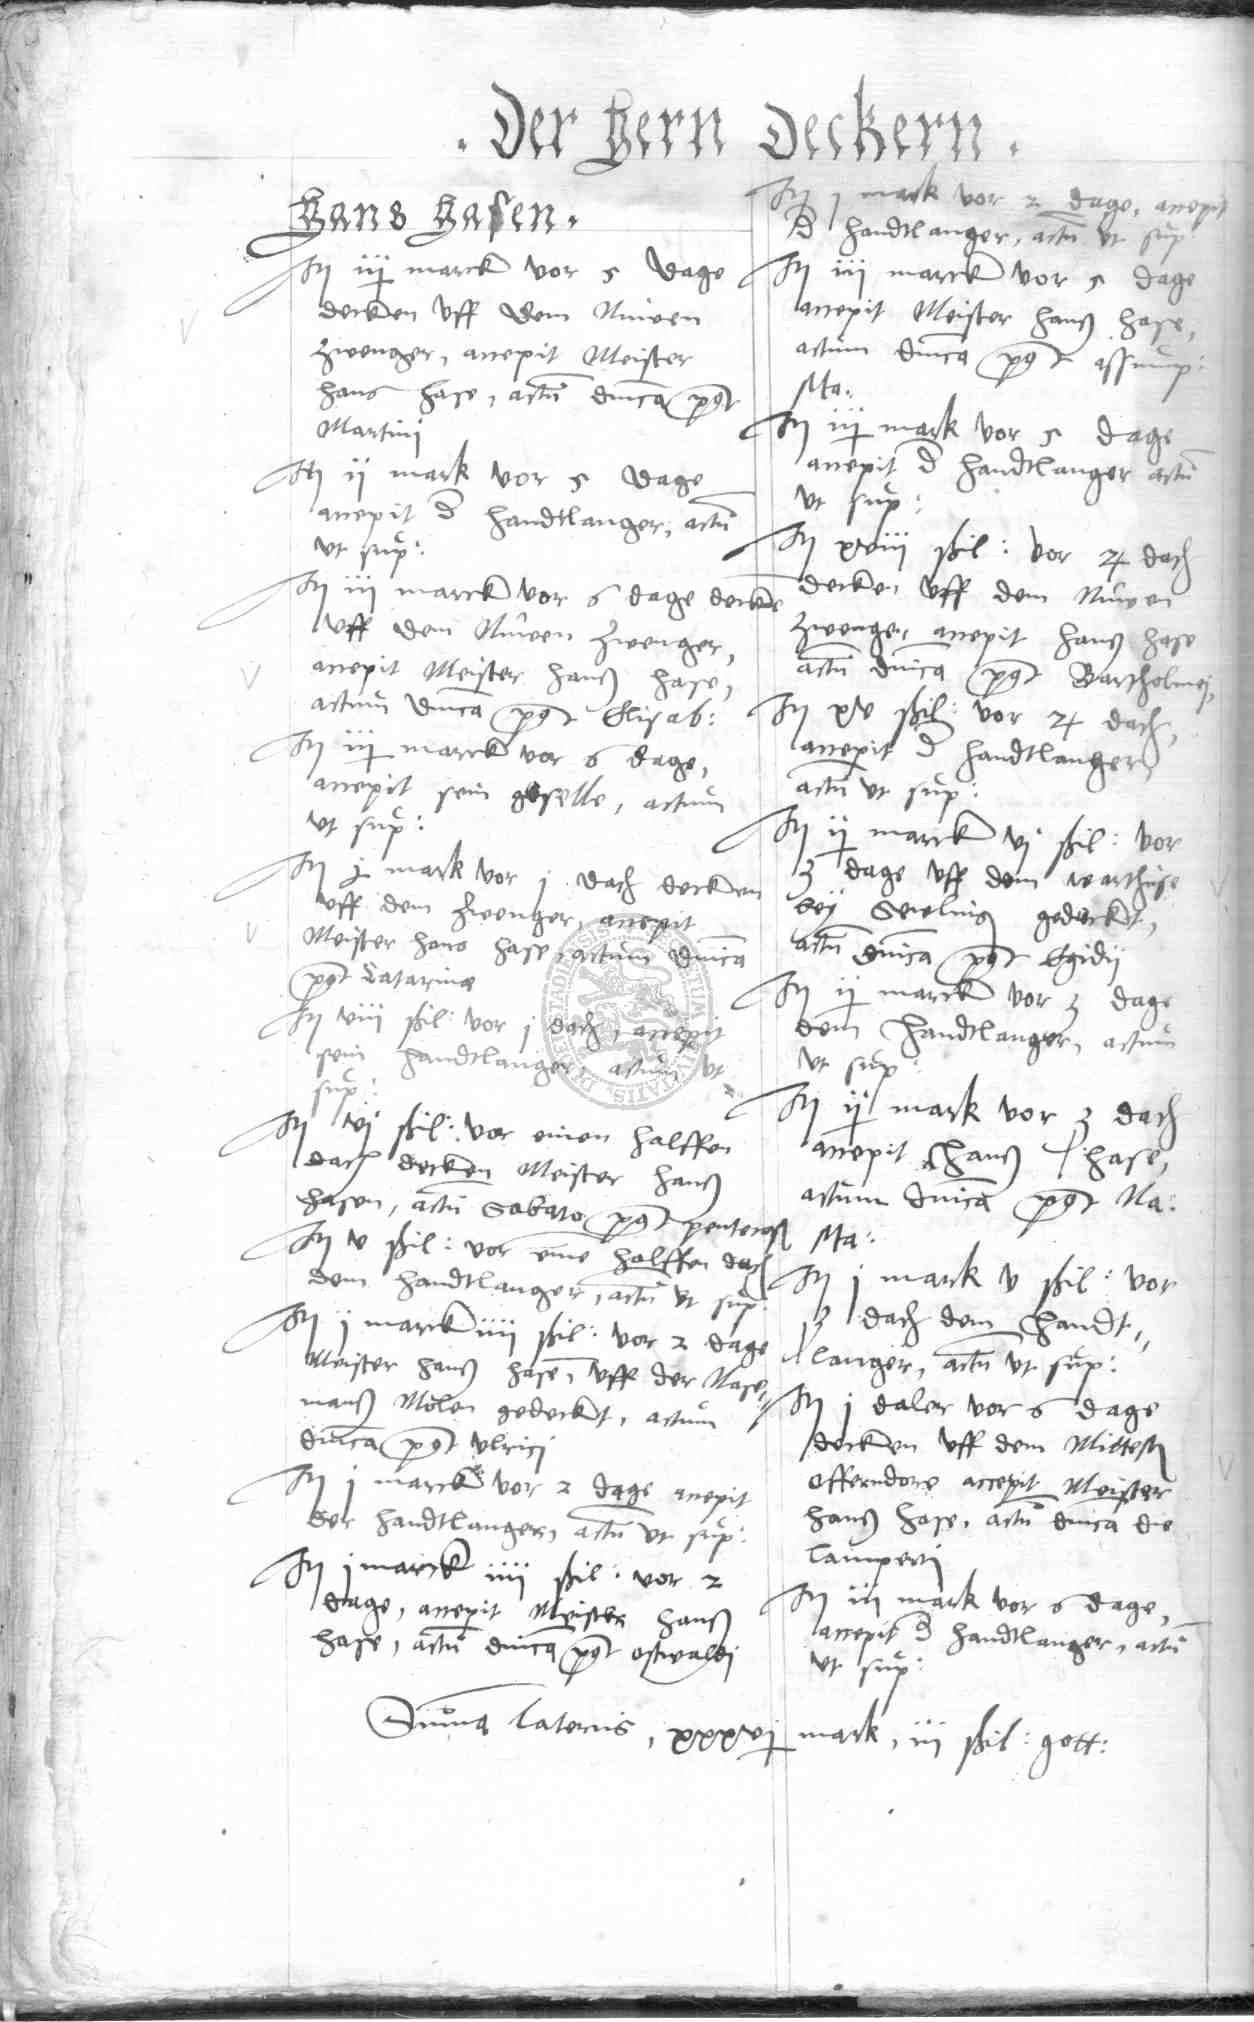 . Der Hern Deckern .
Hans Hasen .
Itt iij marck vor 5 dage
decken uff dem Nuwen
Zwenger, accepit Meister
hans hase, actū dnica post
Martini
Itt ij mark vor 5 dage
accepit d handtlanger, actū
ut sup:
Itt iii marck vor 6 dage decken
uff dem Nuwen Zwenger,
accepit Meister hanß hase,
actum dnica post Elisab:
Itt iij marck vor 6 dage,
accepit sein geselle, actum
ut sup:
Itt j mark vor j dach decken
uff dem Zwenger, accepit
Meister hans hase, actum dnica
post Catarine
Itt viii ßil: vor j dach, accepit
sein handtlanger, actum ut
sup:
Itt vj ßil: vor einen halffen
dach decken Meister hanß
hasen, actū Sabato post pentecos
Itt v ßil: vor eine halffen dach
dem handtlanger, actū ut sup:
Itt j marck iiii ßil: vor 2 dage
Meister hanß hasen, uff der Nase
manß Molen gedeckt, actum
dnica post Ulrici
Itt j marck vor 2 dage accepit
der handtlanger, actū ut sup:
Itt j marck iiii ßil: vor 2
dage, accepit Meister hanß
hase, actū dnica post oswaldi
Itt j mark vor 2 dage, accepit
d handtlanger, actū ut sup
Itt iii marck vor 5 dage
accepit Meister hanß hase,
actum dnica post assump:
Ma:
Itt iij mark vor 5 dage
accepit d handtlanger actū
ut sup:
Itt xviii ßil: vor dach
decken uff dem Nuwen
Zwenger, accepit hanß hase
actū dnica post Bartholmej,
Itt xv ßil: vor dach,
accepit d handtlanger,
actū ut sup:
Itt ij marck vj ßil: vor
3 dage uff dem warthuse
bey gedeckt,
actū dnica post Egidij
Itt ij marck vor 3 dage
dem handtlanger, actum
ut sup:
Itt ij mark vor 3 dach
accepit hanß hase,
actum dnica post Na:
Ma:
Itt j mark v ßil: vor
3 dach dem handt„
langer, actū ut sup:
Itt j daler vor 6 dage
decken uff dem
accepit Meister
hanß hase, actū dnica die
lamperti
Itt iij mark vor 6 dage,
accepit d handtlanger, actū
ut sup:
Suma lateris, xxxvj mark, iii ßil: gott: